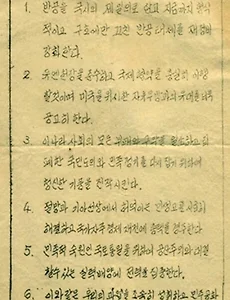 1. 반공을 국시의 제일의로 삼고 지금까지 형식
적이고 구호에만 그친 반공태세를 재정비
강화한다.
2. 유엔헌장을 준수하고 국제협약을 충실히 이행
할것이며 미국을 위시한 자유우방과의 유대를 더욱
공고히 한다.
3. 이나라 사회의 모든 부패와 구악을 일소하고 퇴
폐한 국민도의와 민족정기를 다시 바로 잡기 위하여
청신한 기풍을 진작시킨다.
4. 절망과 기아선상에서 허덕이는 민생고를 시급히
해결하고 국가자주경제 재건에 총력을 경주한다
5. 민족적 숙원인 국토통일을 위하여 공산주의와 대결
할수 있는 실력배양에 전력을 집중한다.
6. 이와같은 우리의 과업을